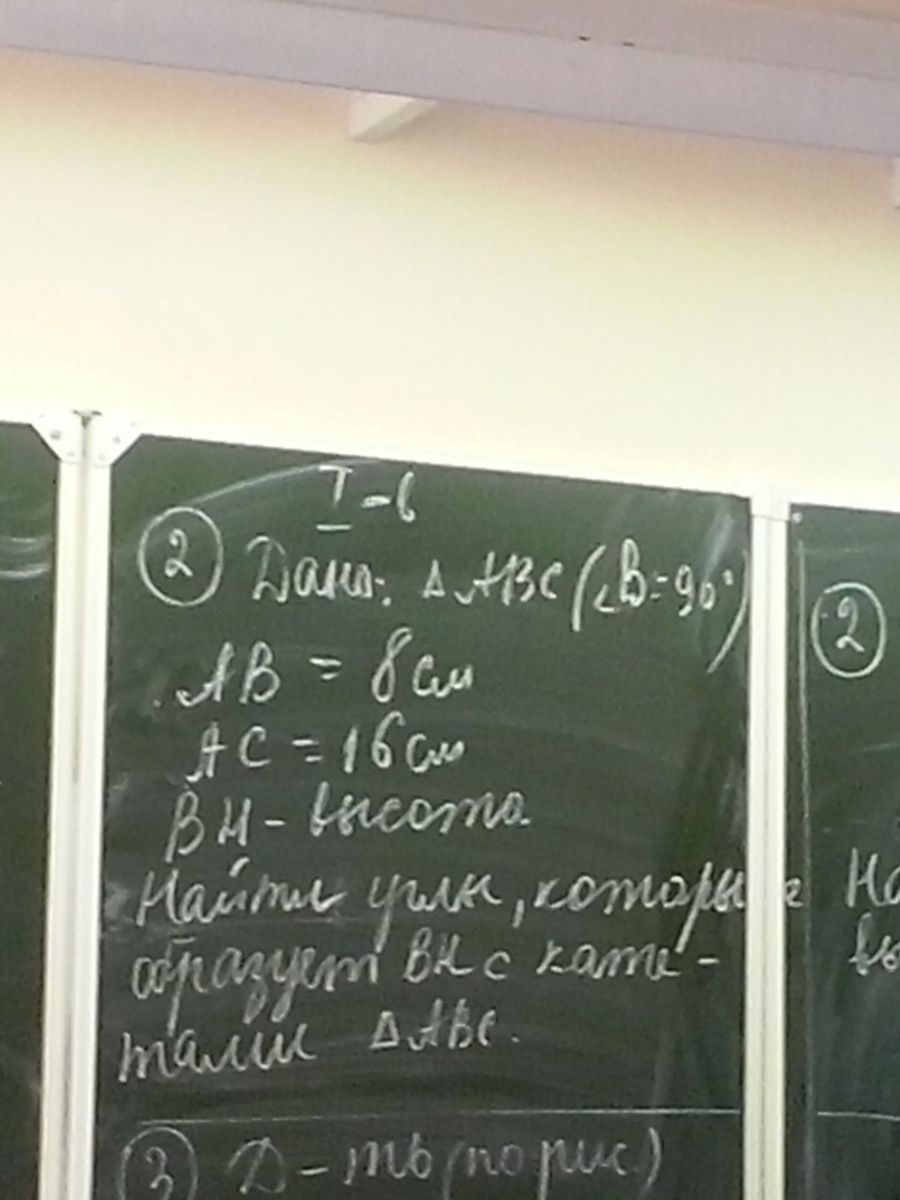 I-в
② Дано: △ABC (∠B=90°)
AB = 8 см
AC = 16 см
BH - высота.
Найти углы, которые
образует BH с кате-
тами △ABC.
③ Д-ть (по рис.)
②